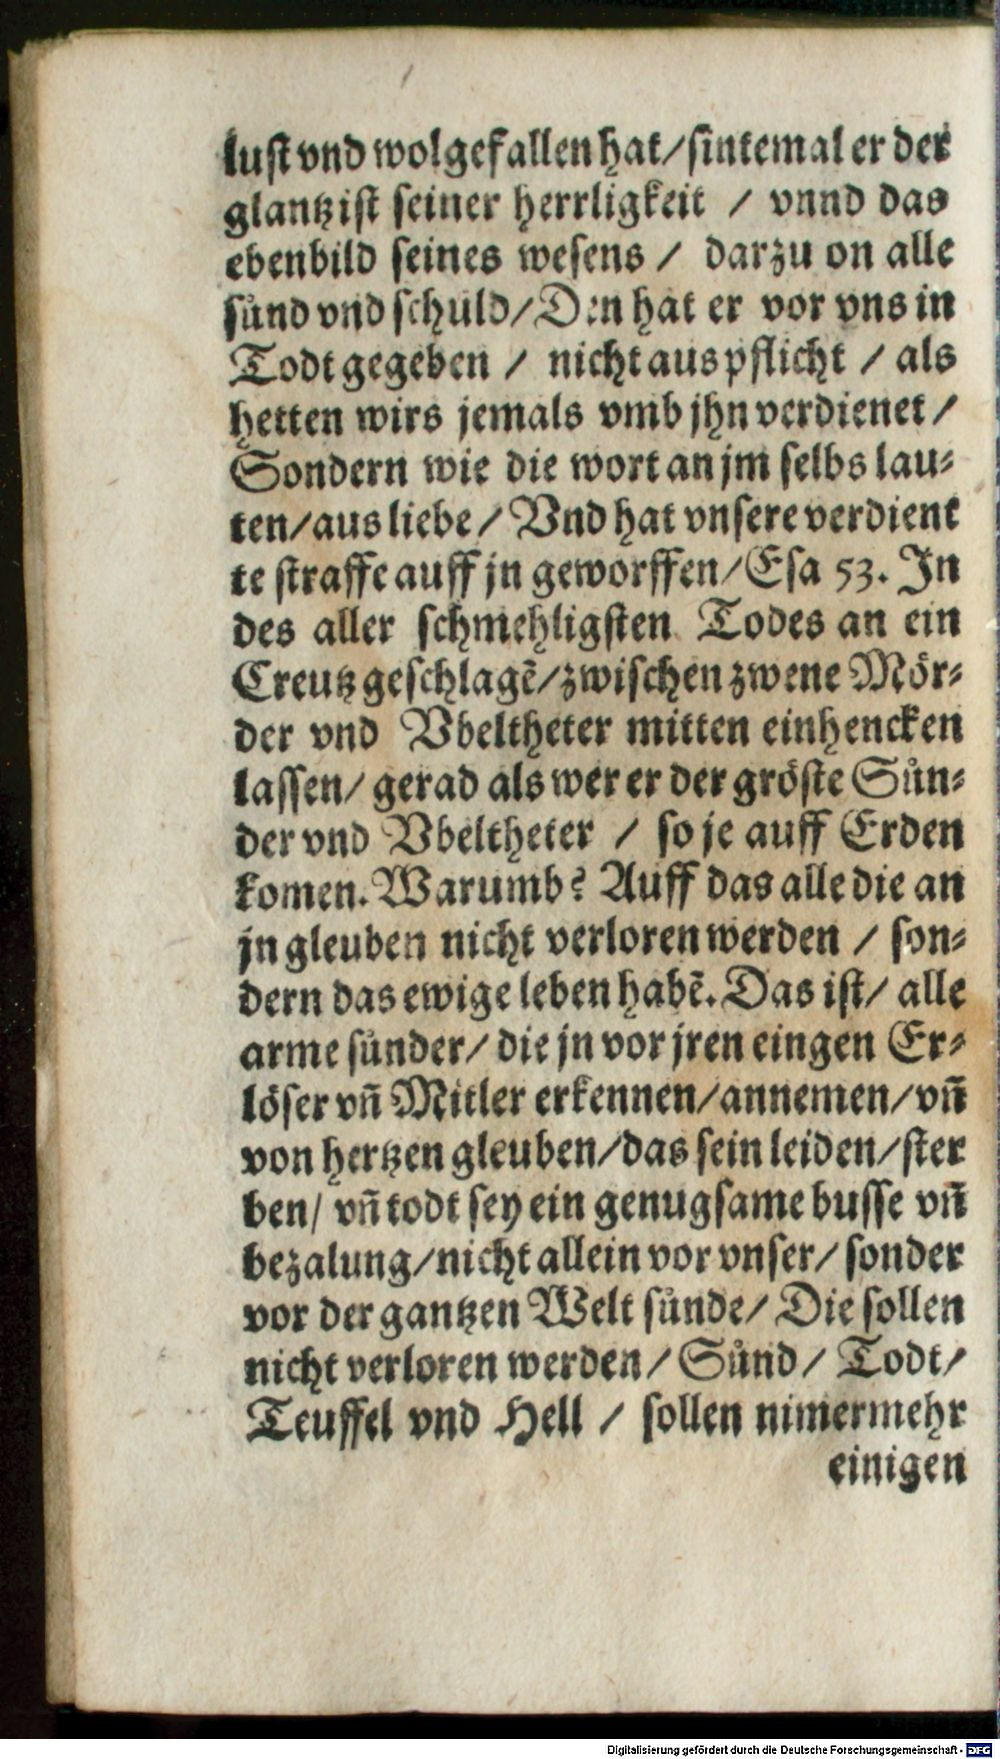 lust vnd wolgefallen hat/sintemal er der
glantz ist seiner herrligkeit / vnnd das
ebenbild seines wesens / darzu on alle
sünd vnd schuld/Den hat er vor vns in
Todt gegeben / nicht aus pflicht / als
hetten wirs jemals vmb jhn verdienet /
Sondern wie die wort an jm selbs lau⸗
ten/aus liebe / Vnd hat vnsere verdient
te straffe auff jn geworffen/Esa 53. In
des aller schmehligsten Todes an ein
Creutz geschlagē/zwischen zwene Mör⸗
der vnd Vbeltheter mitten einhencken
lassen/ gerad als wer er der gröste Sün⸗
der vnd Vbeltheter / so je auff Erden
komen. Warumb? Auff das alle die an
jn gleuben nicht verloren werden / son⸗
dern das ewige leben habē. Das ist/ alle
arme sünder/ die jn vor jren eingen Er⸗
löser vñ Mitler erkennen/annemen/vñ
von hertzen gleuben/das sein leiden/ster
ben/ vñ todt sey ein genugsame busse vñ
bezalung/nicht allein vor vnser/ sonder
vor der gantzen Welt sünde/ Die sollen
nicht verloren werden/ Sünd/ Todt/
Teuffel vnd Hell / sollen nimermehr
einigen
Digitalisierung gefördert durch die Deutsche Forschungsgemeinschaft - DFG